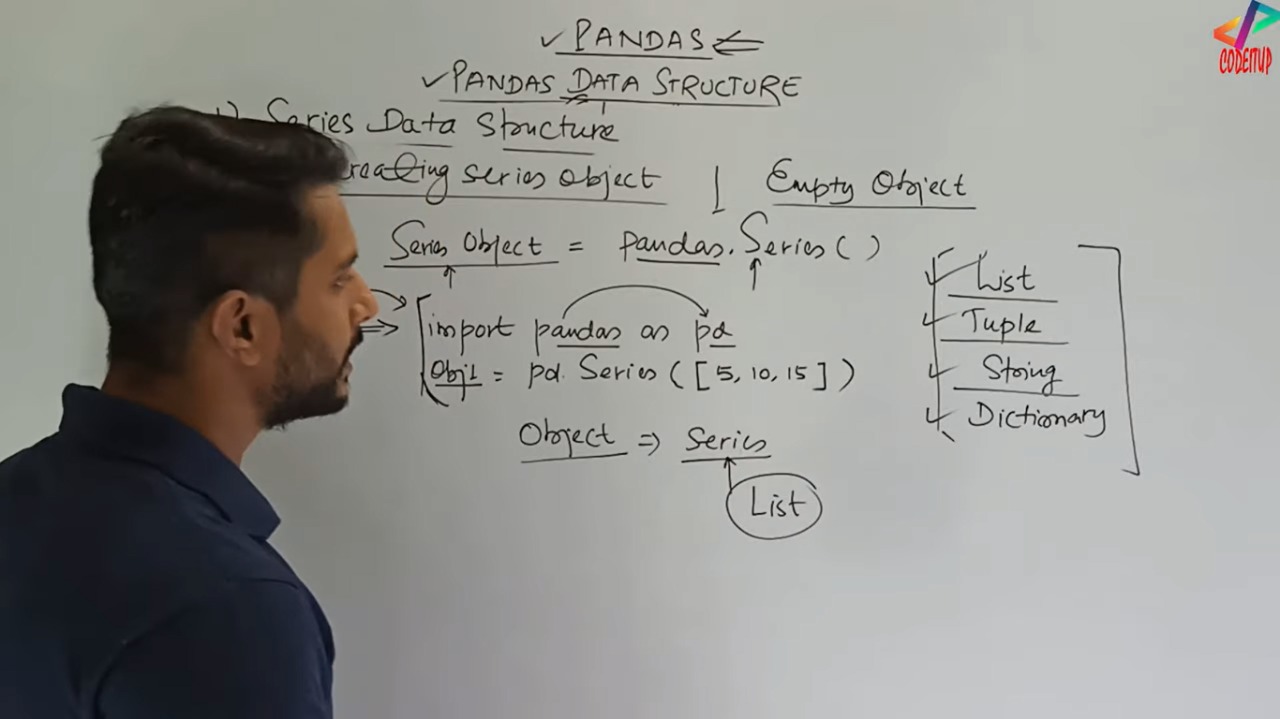 ✓ PANDAS ⇐
✓ PANDAS DATA STRUCTURE
1) Series Data Structure
Creating series object | Empty Object
Series Object = pandas.Series()
import pandas as pd
Obj1 = pd.Series([5, 10, 15])
Object ⇒ Series
List
List
Tuple
String
Dictionary
CODEITUP